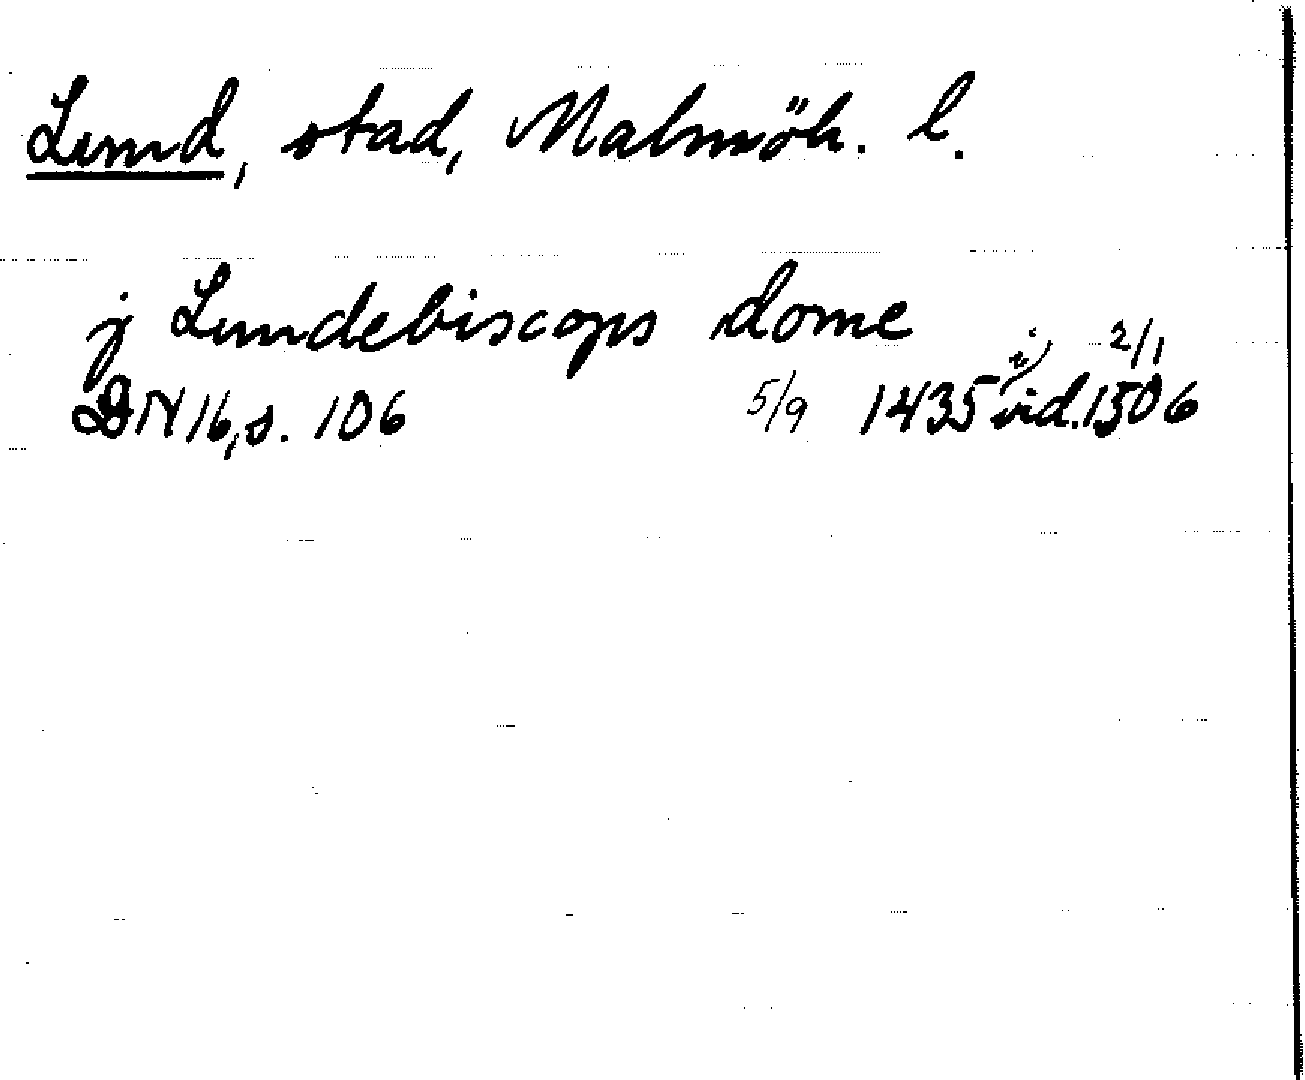 Lund, stad, Malmöh. l.
j Lundebiscops dome
DN 16, s. 106 5/9 1435 i vid. 2/1 1506